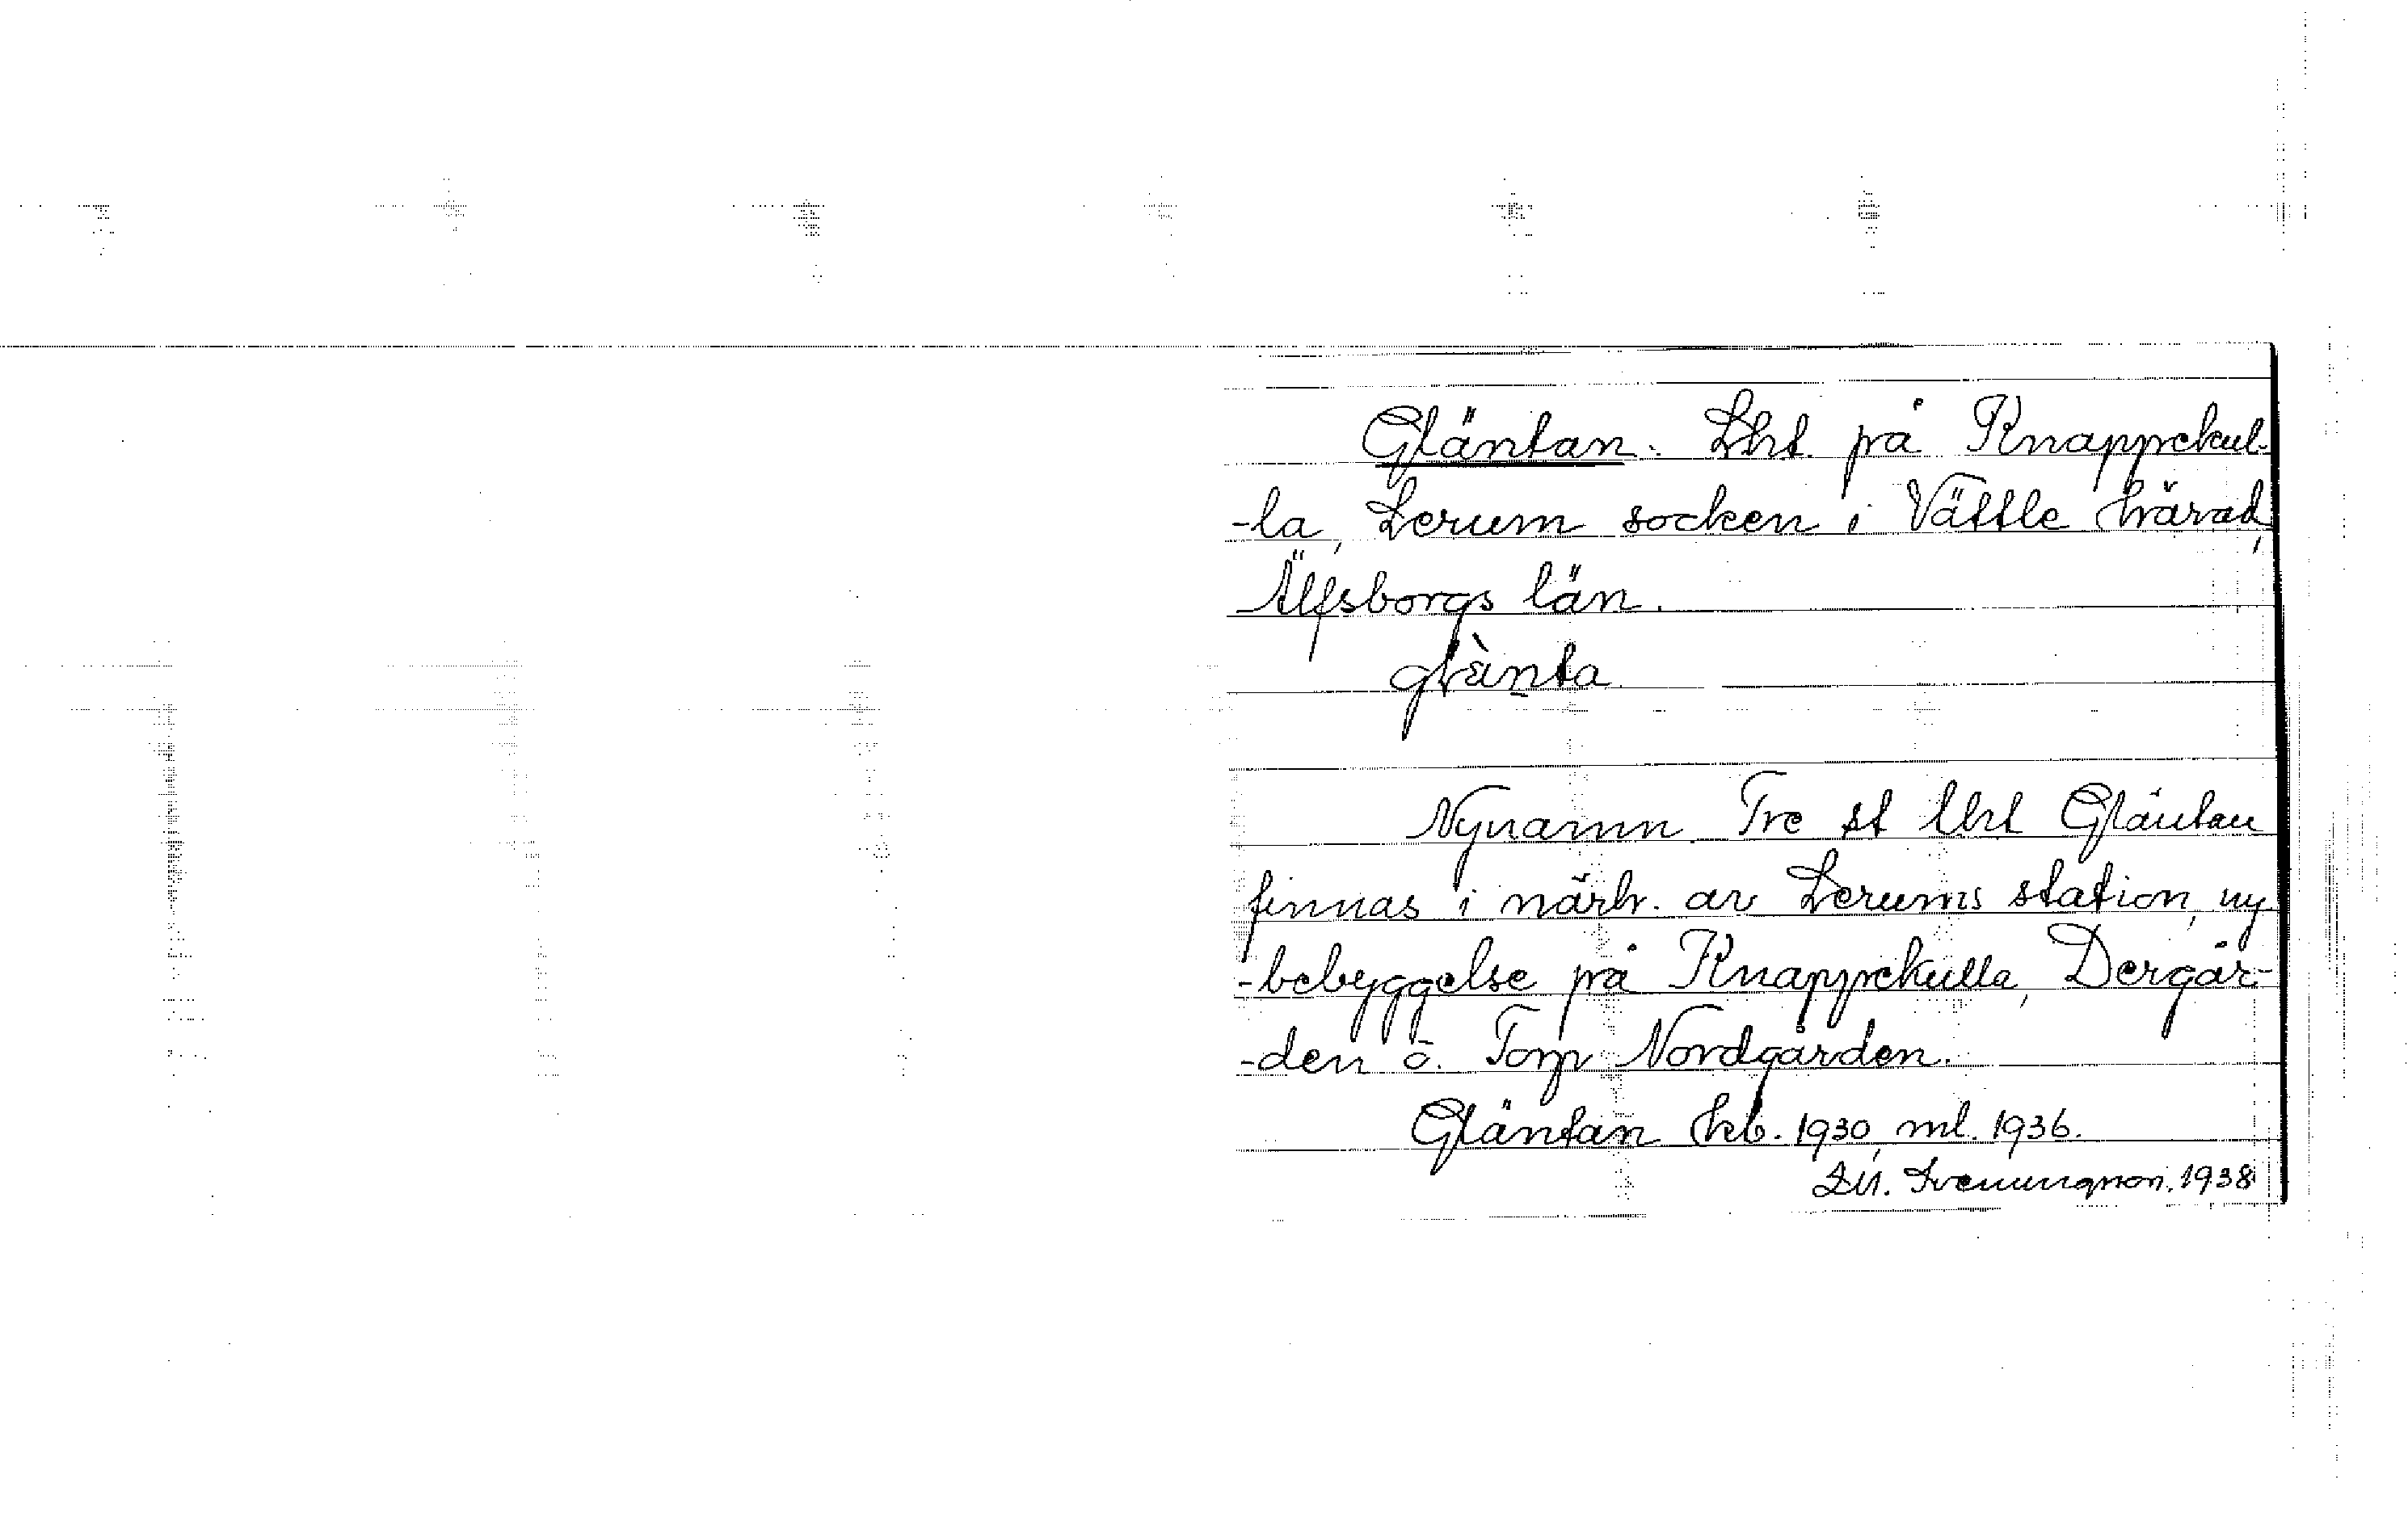 Gläntan. Lht. på Knappekul-
-la, Lerum socken i Vättle härad,
Älfsborgs län.
glànta.
Nynamn. Tre st lht Gläntan
finnas i närh. av Lerums station, ny
-bebyggelse på Knappekulla, Dergår-
-den o. Torp Nordgården.
Gläntan hb. 1930, ml. 1936.
1938